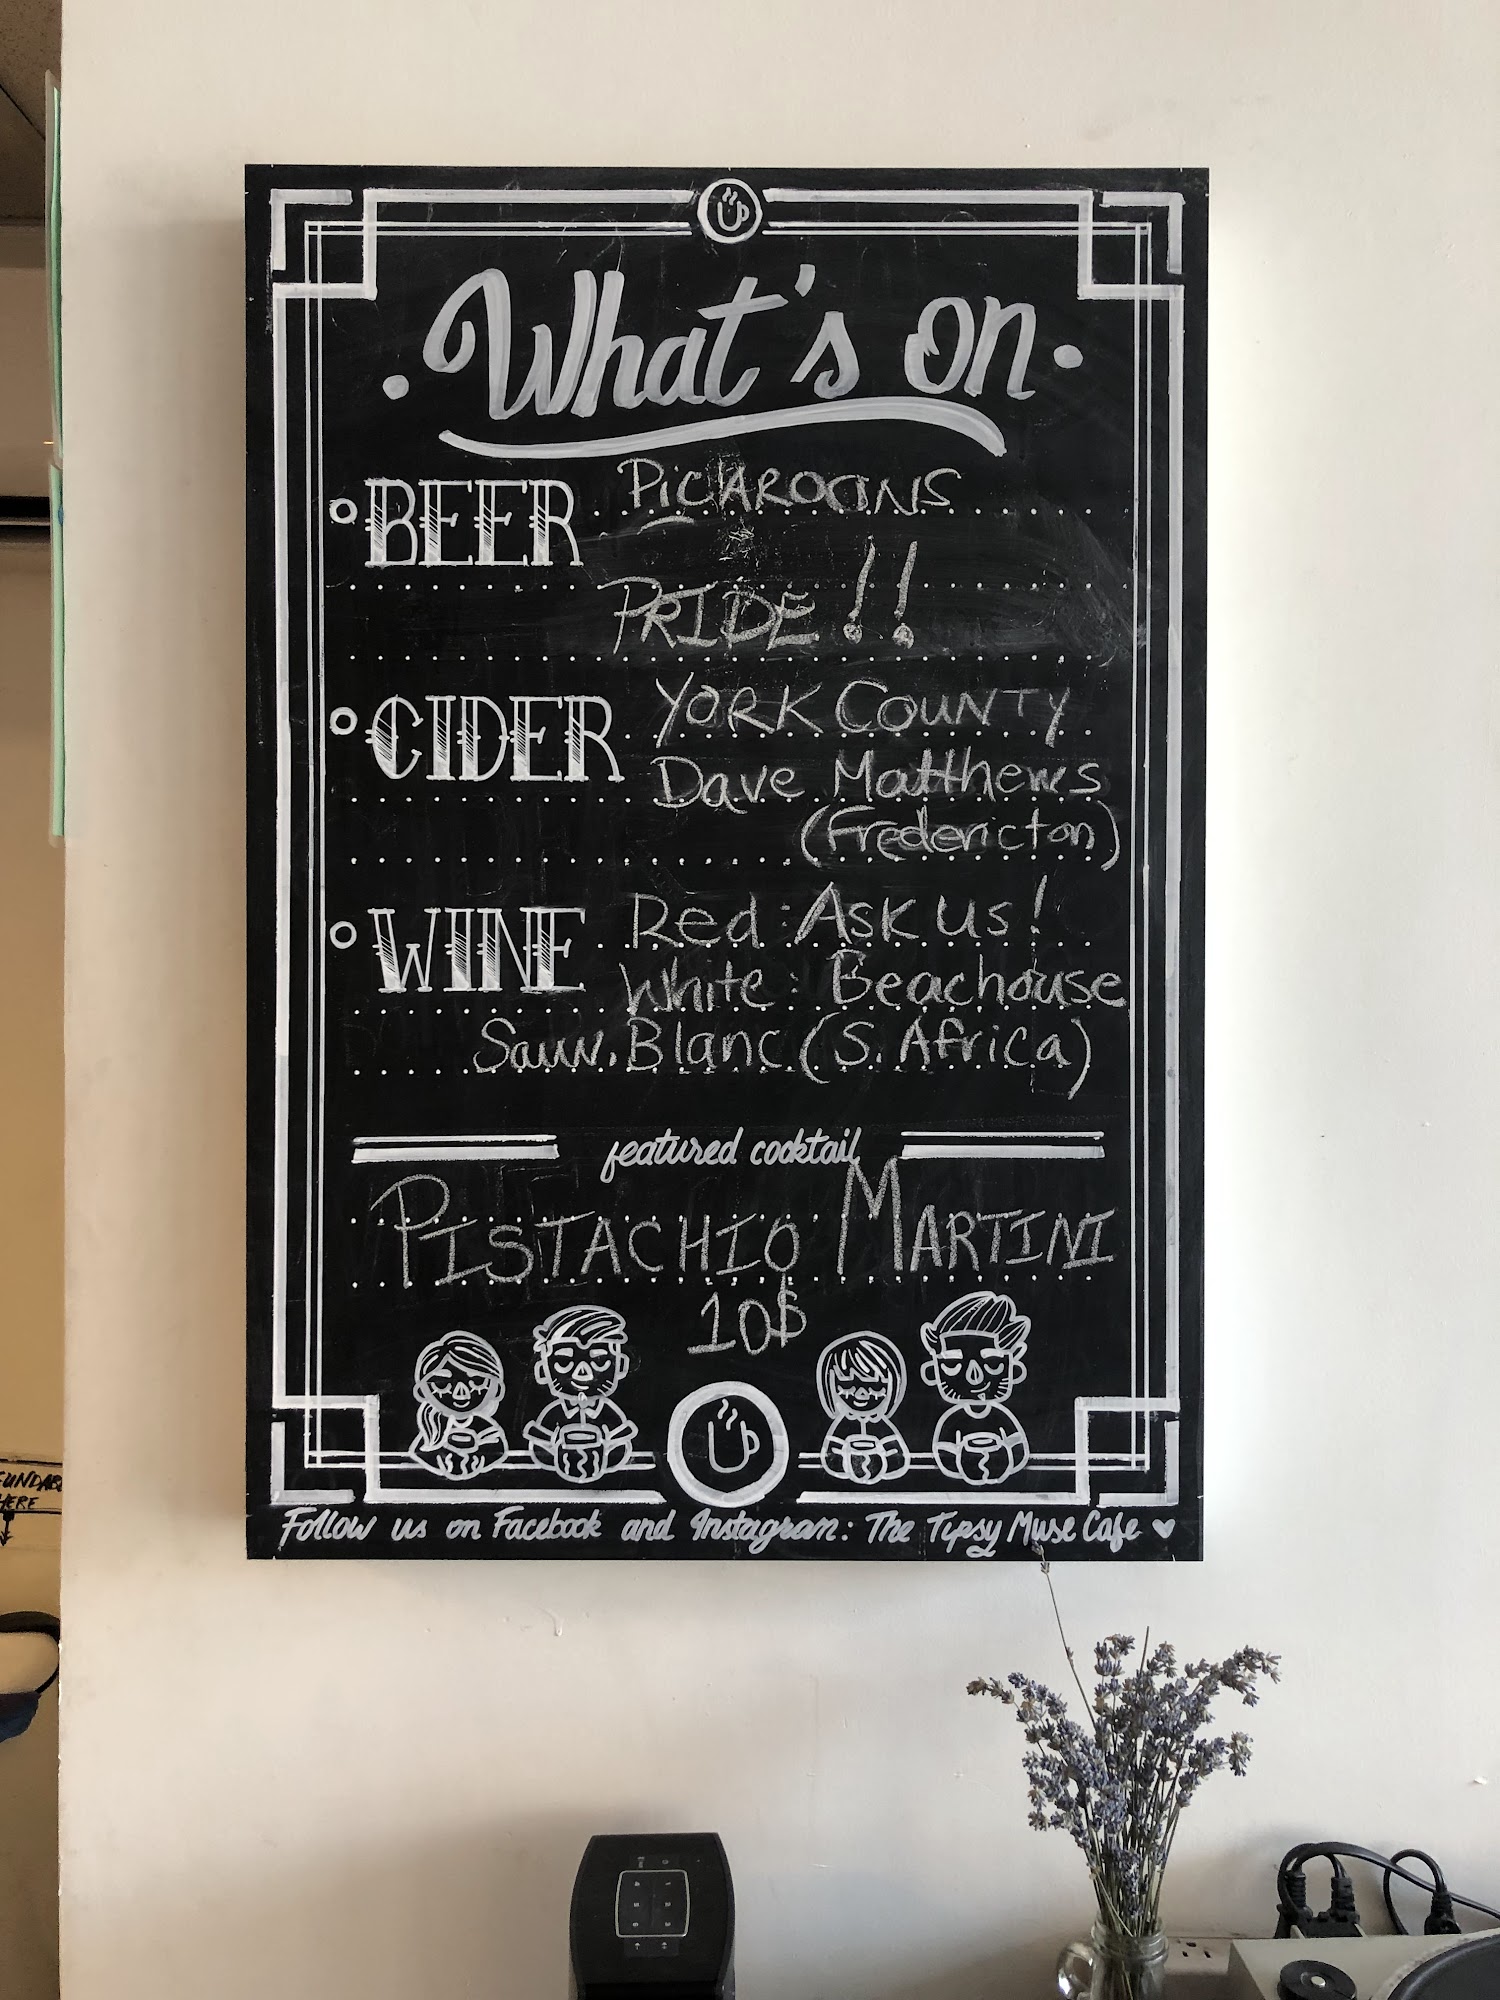 What's on
BEER PICAROONS
PRIDE!!
CIDER YORK COUNTY
Dave Matthews
(Fredericton)
WINE Red: Ask us!
White: Beachouse
Sauv. Blanc (S. Africa)
featured cocktail
PISTACHIO MARTINI
10$
Follow us on Facebook and Instagram: The Tipsy Muse Cafe
HERE